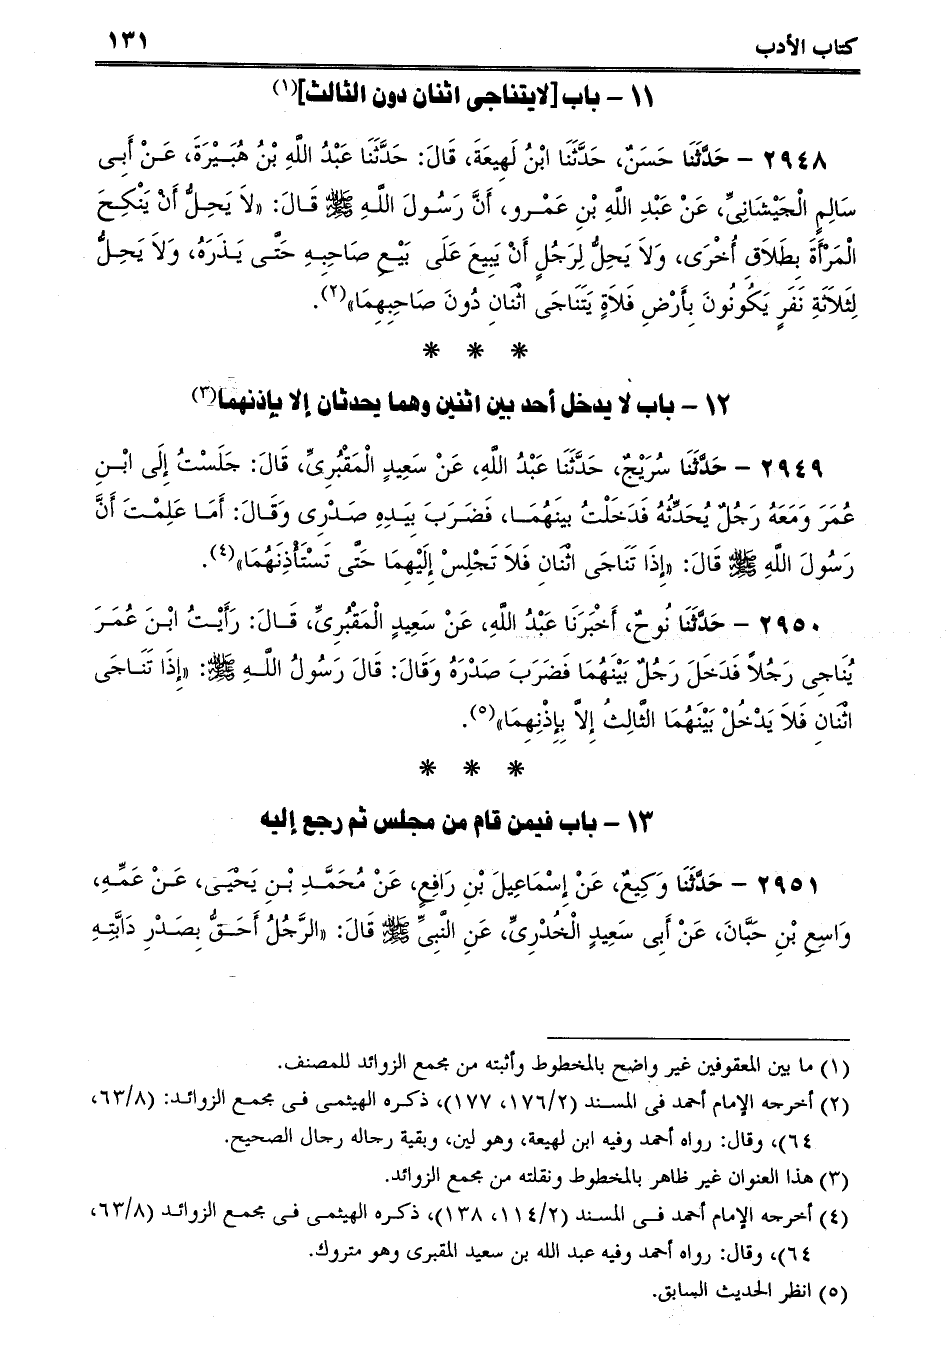 كتاب الأدب ١٣١
١١ – باب [لا يتناجى اثنان دون الثالث](١)
٢٩٤٨ – حَدَّثَنَا حَسَنٌ، حَدَّثَنَا ابْنُ لَهِيعَةَ، قَالَ: حَدَّثَنَا عَبْدُ اللَّهِ بْنُ هُبَيْرَةَ، عَنْ أَبِى
سَالِمٍ الْجَيْشَانِىِّ، عَنْ عَبْدِ اللَّهِ بْنِ عَمْرو، أَنَّ رَسُولَ اللَّهِ ﷺ قَالَ: «لاَ يَحِلُّ أَنْ يَنْكِحَ
الْمَرْأَةَ بِطَلاَقِ أُخْرَى، وَلاَ يَحِلُّ لِرَجُلٍ أَنْ يَبِيعَ عَلَى بَيْعِ صَاحِبِهِ حَتَّى يَذَرَهُ، وَلاَ يَحِلُّ
لِثَلاَثَةِ نَفَرٍ يَكُونُونَ بِأَرْضِ فَلاَةٍ يَتَنَاجَى اثْنَانِ دُونَ صَاحِبِهِمَا»(٢).
* * *
١٢ – باب لا يدخل أحد بين اثنين وهما يحدثان إلا بإذنهما(٣)
٢٩٤٩ – حَدَّثَنَا سُرَيْجٌ، حَدَّثَنَا عَبْدُ اللَّهِ، عَنْ سَعِيدٍ الْمَقْبُرِىِّ، قَالَ: جَلَسْتُ إِلَى ابْنِ
عُمَرَ وَمَعَهُ رَجُلٌ يُحَدِّثُهُ فَدَخَلْتُ بينَهُمَا، فَضَرَبَ بِيَدِهِ صَدْرِى وَقَالَ: أَمَا عَلِمْتَ أَنَّ
رَسُولَ اللَّهِ ﷺ قَالَ: «إِذَا تَنَاجَى اثْنَانِ فَلاَ تَجْلِسْ إِلَيْهِمَا حَتَّى تَسْتَأْذِنَهُمَا»(٤).
٢٩٥٠ – حَدَّثَنَا نُوحٌ، أَخْبَرَنَا عَبْدُ اللَّهِ، عَنْ سَعِيدٍ الْمَقْبُرِىِّ، قَالَ: رَأَيْتُ ابْنَ عُمَرَ
يُنَاجِى رَجُلاً فَدَخَلَ رَجُلٌ بَيْنَهُمَا فَضَرَبَ صَدْرَهُ وَقَالَ: قَالَ رَسُولُ اللَّهِ ﷺ: «إِذَا تَنَاجَى
اثْنَانِ فَلاَ يَدْخُلْ بَيْنَهُمَا الثَّالِثُ إِلاَّ بِإِذْنِهِمَا»(٥).
* * *
١٣ – باب فيمن قام من مجلس ثم رجع إليه
٢٩٥١ – حَدَّثَنَا وَكِيعٌ، عَنْ إِسْمَاعِيلَ بْنِ رَافِعٍ، عَنْ مُحَمَّدِ بْنِ يَحْيَى، عَنْ عَمِّهِ،
وَاسِعِ بْنِ حَبَّانَ، عَنْ أَبِى سَعِيدٍ الْخُدْرِىِّ، عَنِ النَّبِىِّ ﷺ قَالَ: «الرَّجُلُ أَحَقُّ بِصَدْرِ دَابَّتِهِ
(١) ما بين المعقوفين غير واضح بالمخطوط وأثبته من مجمع الزوائد للمصنف.
(٢) أخرجه الإمام أحمد فى المسند (١٧٦/٢، ١٧٧)، ذكره الهيثمى فى مجمع الزوائد: (٦٣/٨،
٦٤)، وقال: رواه أحمد وفيه ابن لهيعة، وهو لين، وبقية رجاله رجال الصحيح.
(٣) هذا العنوان غير ظاهر بالمخطوط ونقلته من مجمع الزوائد.
(٤) أخرجه الإمام أحمد فى المسند (١١٤/٢، ١٣٨)، ذكره الهيثمى فى مجمع الزوائد (٦٣/٨،
٦٤)، وقال: رواه أحمد وفيه عبد الله بن سعيد المقبرى وهو متروك.
(٥) انظر الحديث السابق.